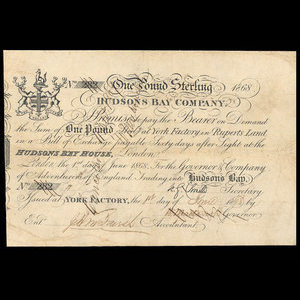 No. 222 One Pound Sterling 1868
HUDSONS BAY COMPANY.
Promise to pay the Bearer on Demand
the Sum of One Pound at York Factory in Ruperts Land
in a Bill of Exchange payable Sixty days after Sight at the
HUDSONS BAY HOUSE, London.
London the 1st day June 1868. For the Governor & Company
of Adventurers of England Trading into Hudsons Bay.
No. 222 Secretary
Issued at YORK FACTORY, the day of by
Governor
Ent. Accountant